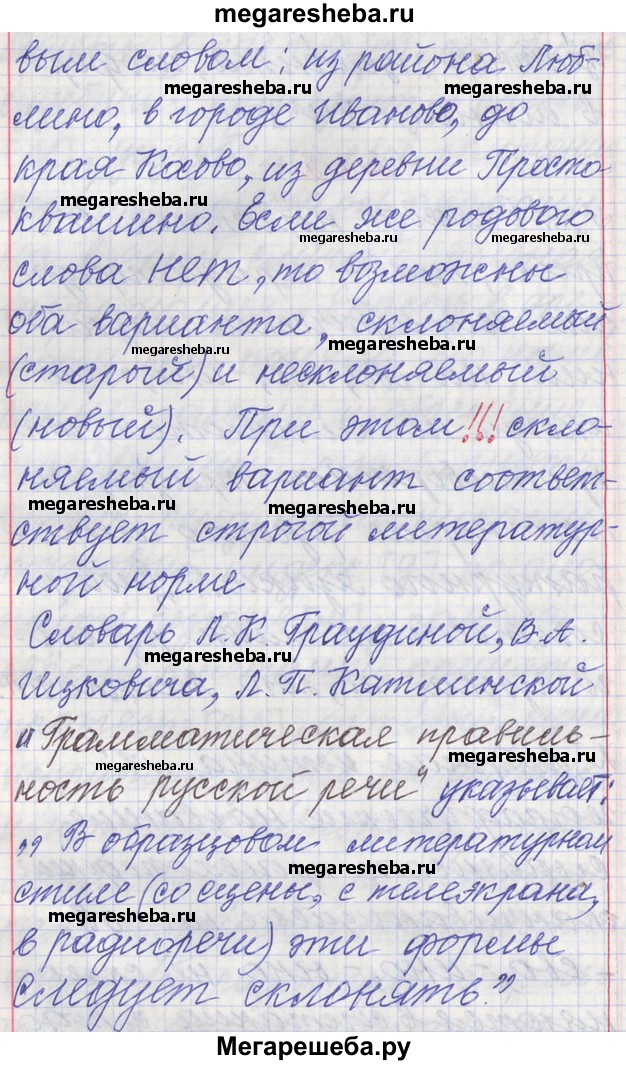 megaresheba.ru
вым словом: из района Люб-
megaresheba.ru megaresheba.ru
лино, в городе Иваново, до
края Косово, из деревни Просто-
megaresheba.ru
квашино. Если же родового
megaresheba.ru megaresheba.ru
слова нет, то возможны
оба варианта, склоняемый
megaresheba.ru megaresheba.ru
(старый) и несклоняемый
(новый). При этом !!! скло-
няемый вариант соответ-
megaresheba.ru megaresheba.ru
ствует строгой литератур-
ной норме
Словарь Л.К Граудиной, В.А.
megaresheba.ru
Ицковича, Л.П. Катлинской
"Грамматическая правиль-
megaresheba.ru
ность русской речи" указывает:
„В образцовом литературном
megaresheba.ru
стиле (со сцены, с телеэкрана,
megaresheba.ru
в радиоречи) эти формы
следует склонять."
Мегарешеба.ру